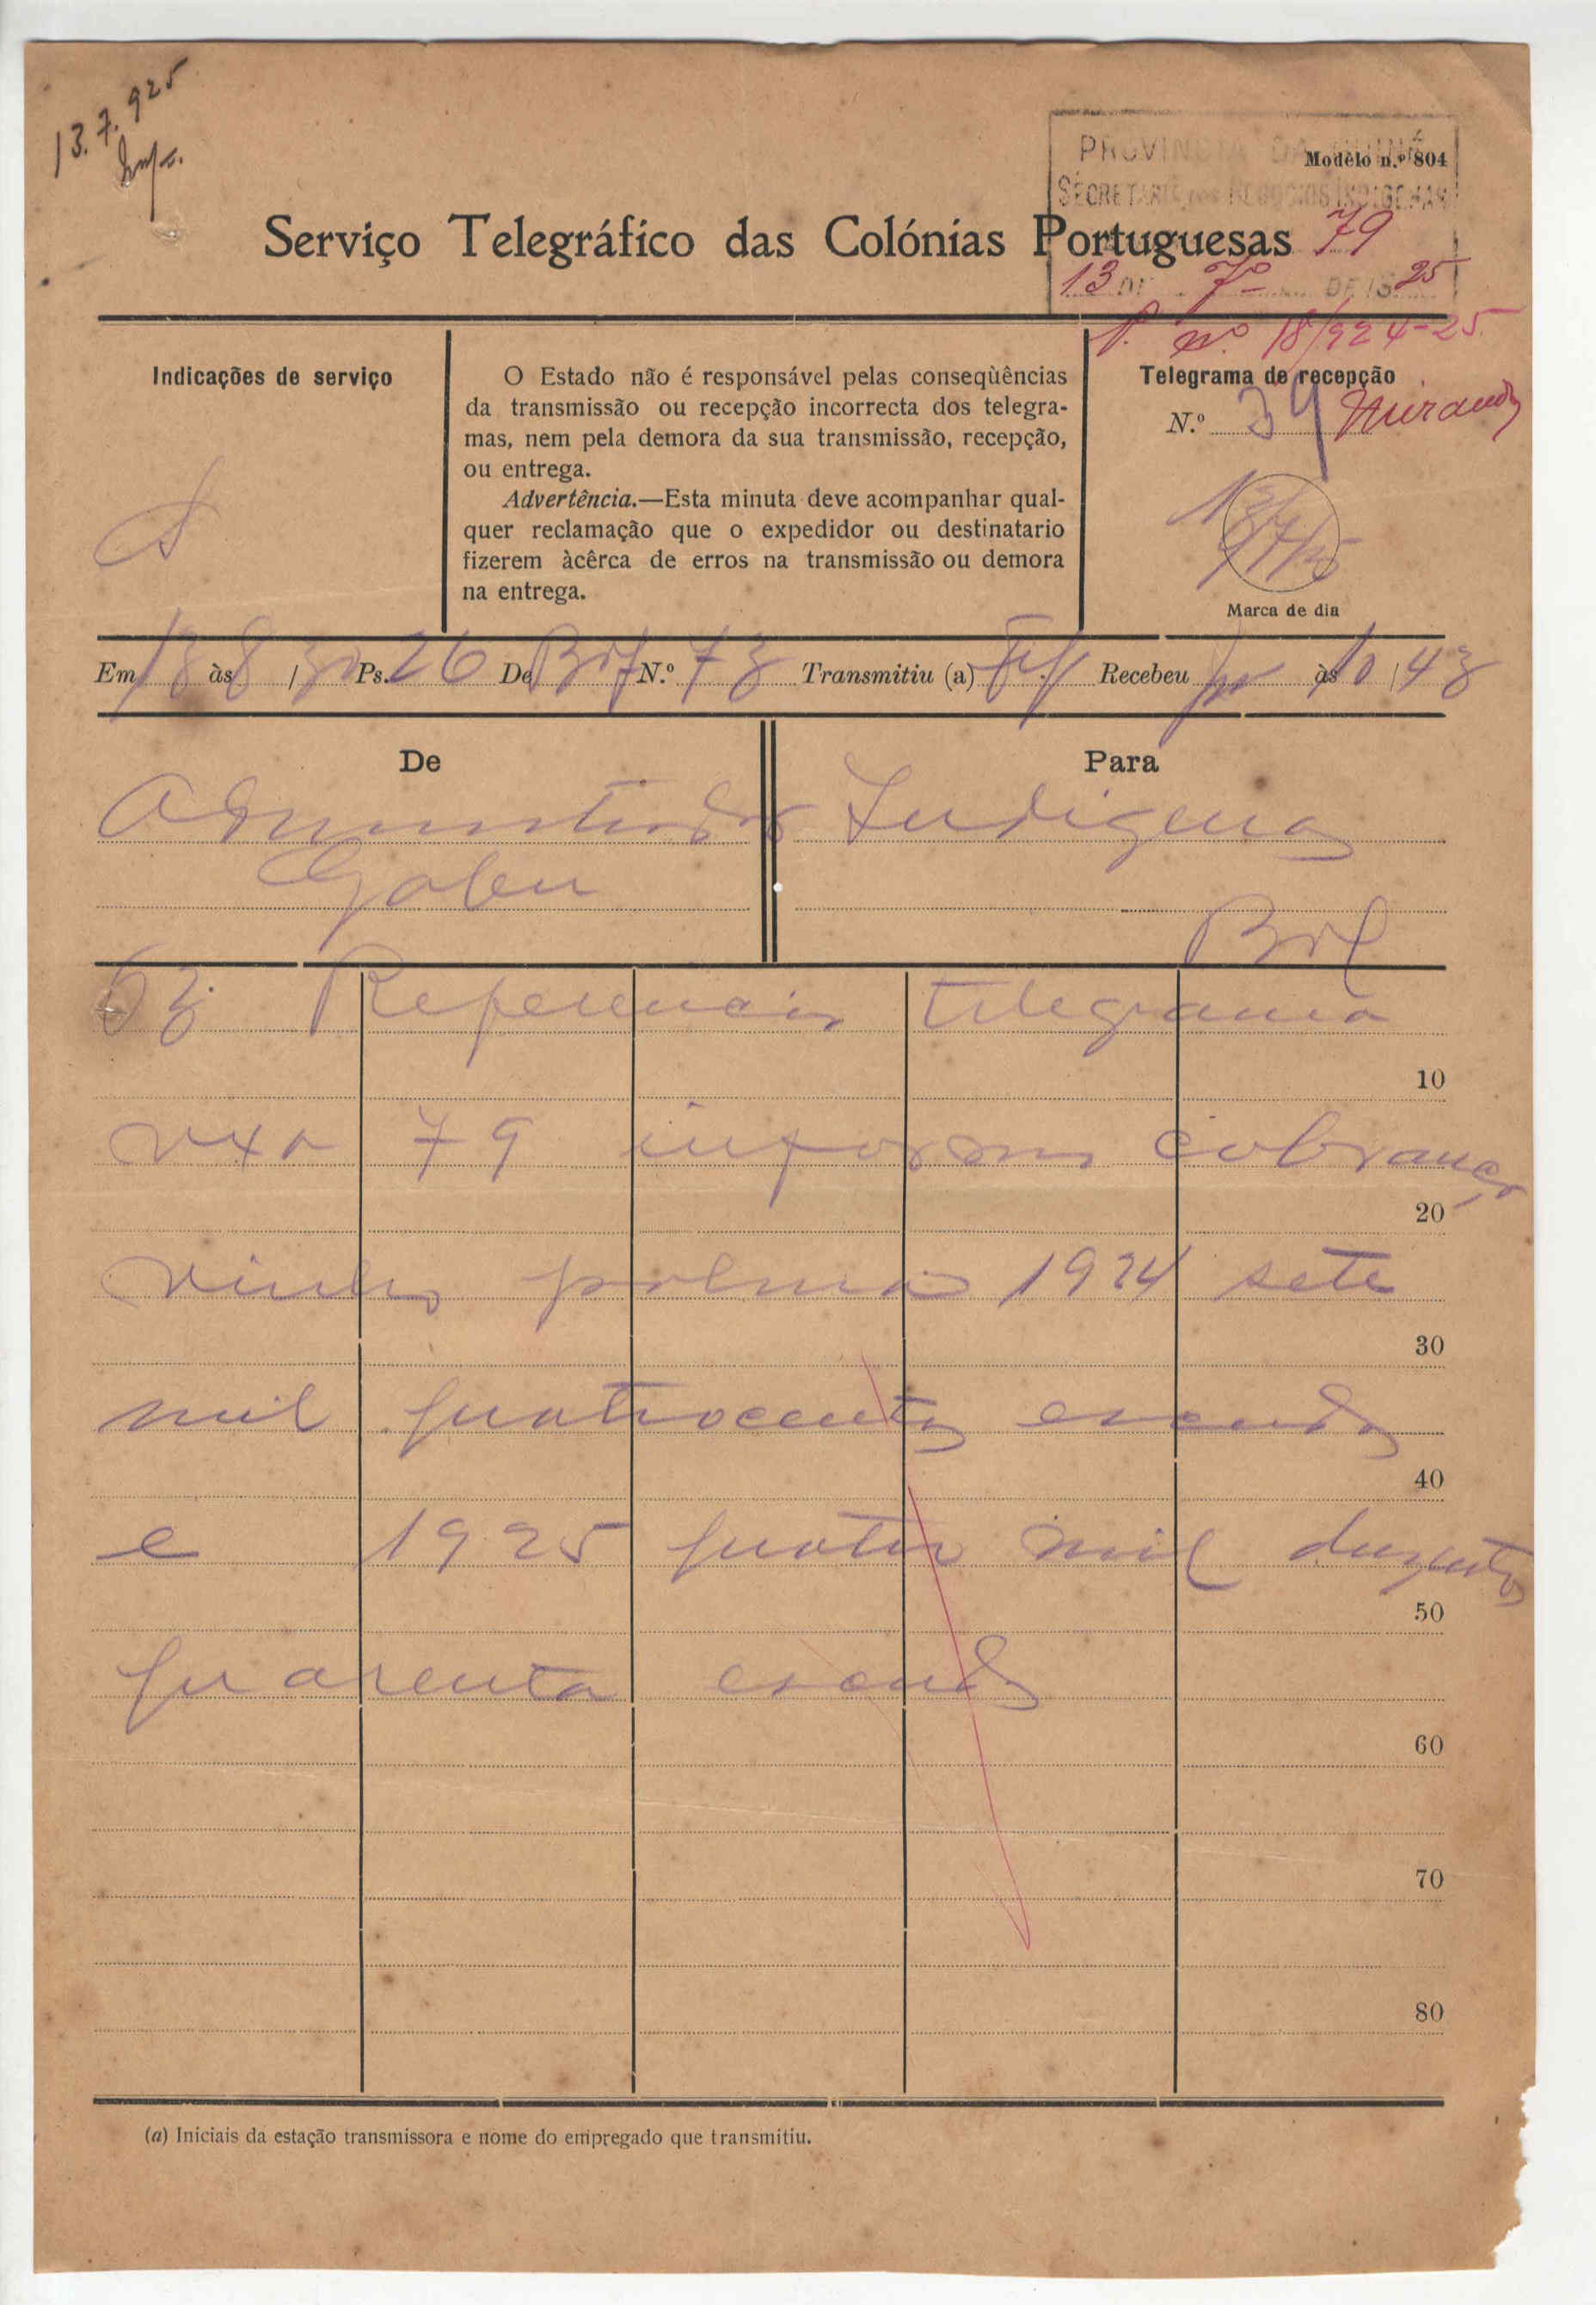 13.7.925
PROVINCIA DA GUINÉ
Modêlo n.º 804
SECRETARIA dos NEGOCIOS INDIGENAS
Serviço Telegráfico das Colónias Portuguesas
79
13 DE 7º DE 19 25
P. nº 18/924-25
Indicações de serviço
O Estado não é responsável pelas conseqùências
da transmissão ou recepção incorrecta dos telegra-
mas, nem pela demora da sua transmissão, recepção,
ou entrega.
Advertência.—Esta minuta deve acompanhar qual-
quer reclamação que o expedidor ou destinatario
fizerem àcêrca de erros na transmissão ou demora
na entrega.
Telegrama de recepção
N.º 39 Miranda
S
Marca de dia
Em 13 às 8 / 30 Ps. 26 De N.º 73 Transmitiu (a) Recebeu às 10 / 43
De
Para
Administrador
Indigenas
Gabu
Bol
63 Referencia telegrama
10
vxa 79 informo cobrança
20
vinho palma 1924 sete
30
mil quatrocentos escudos
40
e 1925 quatro mil duzentos
50
quarenta escudos
60
70
80
(a) Iniciais da estação transmissora e nome do empregado que transmitiu.